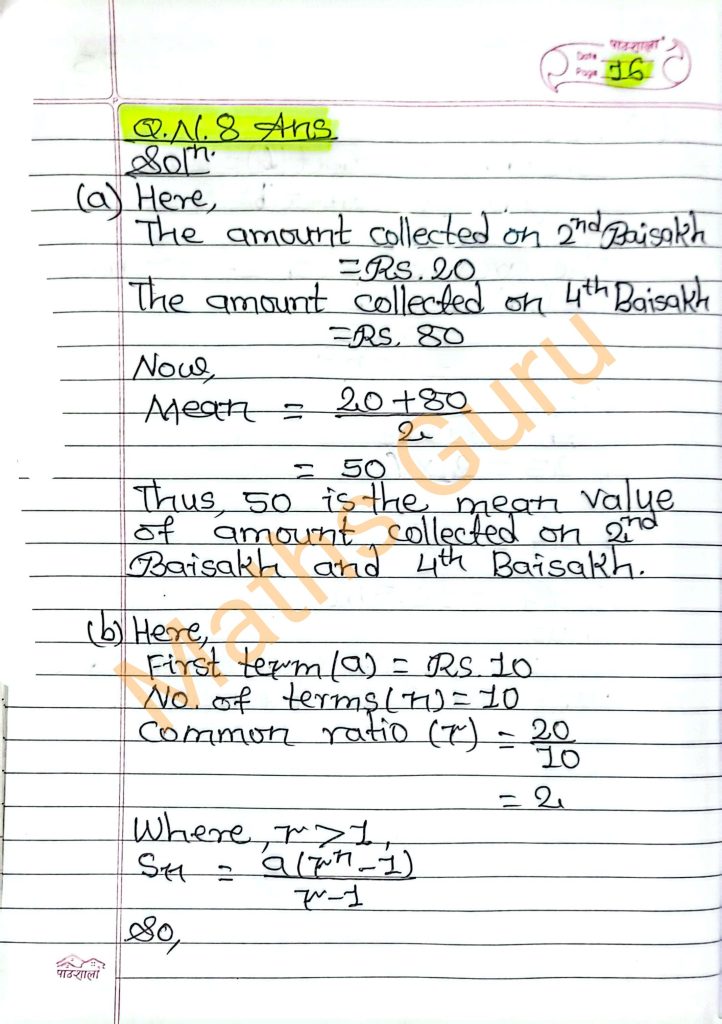 पाठशाला
Date
Page 16
Q.N.8 Ans
Solⁿ.
(a) Here,
The amount collected on 2nd Baisakh
=Rs. 20
The amount collected on 4th Baisakh
=Rs. 80
Now,
Mean = (20+80)/2
= 50
Thus, 50 is the mean value
of amount collected on 2nd
Baisakh and 4th Baisakh.
(b) Here,
First term (a) = Rs. 10
No. of terms (n) = 10
Common ratio (r) = 20/10
= 2
Where, r > 1,
Sn = a(rⁿ - 1)/(r - 1)
So,
पाठशाला
Maths Guru